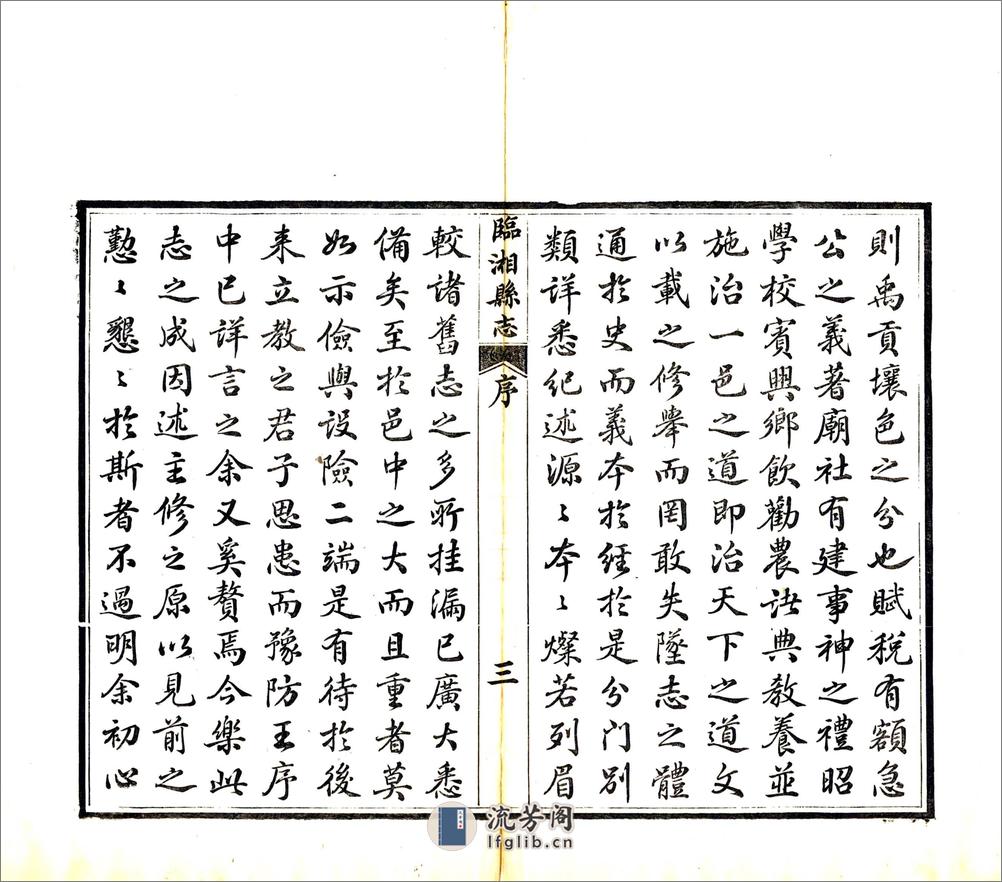 則禹貢壤色之分也賦稅有額急
公之義著廟社有建事神之禮昭
學校賓興鄉飲勸農諸典教養並
施治一邑之道即治天下之道文
以載之修舉而罔敢失墜志之體
通於史而義本於經於是分門別
類詳悉紀述源〻本〻燦若列眉
臨湘縣志
序
三
較諸舊志之多所挂漏已廣大悉
備矣至於邑中之大而且重者莫
如示儉與設險二端是有待於後
來立教之君子思患而豫防王序
中已詳言之余又奚贅焉今樂此
志之成因述主修之原以見前之
懃〻懇〻於斯者不過明余初心
流芳阁
lfglib.cn